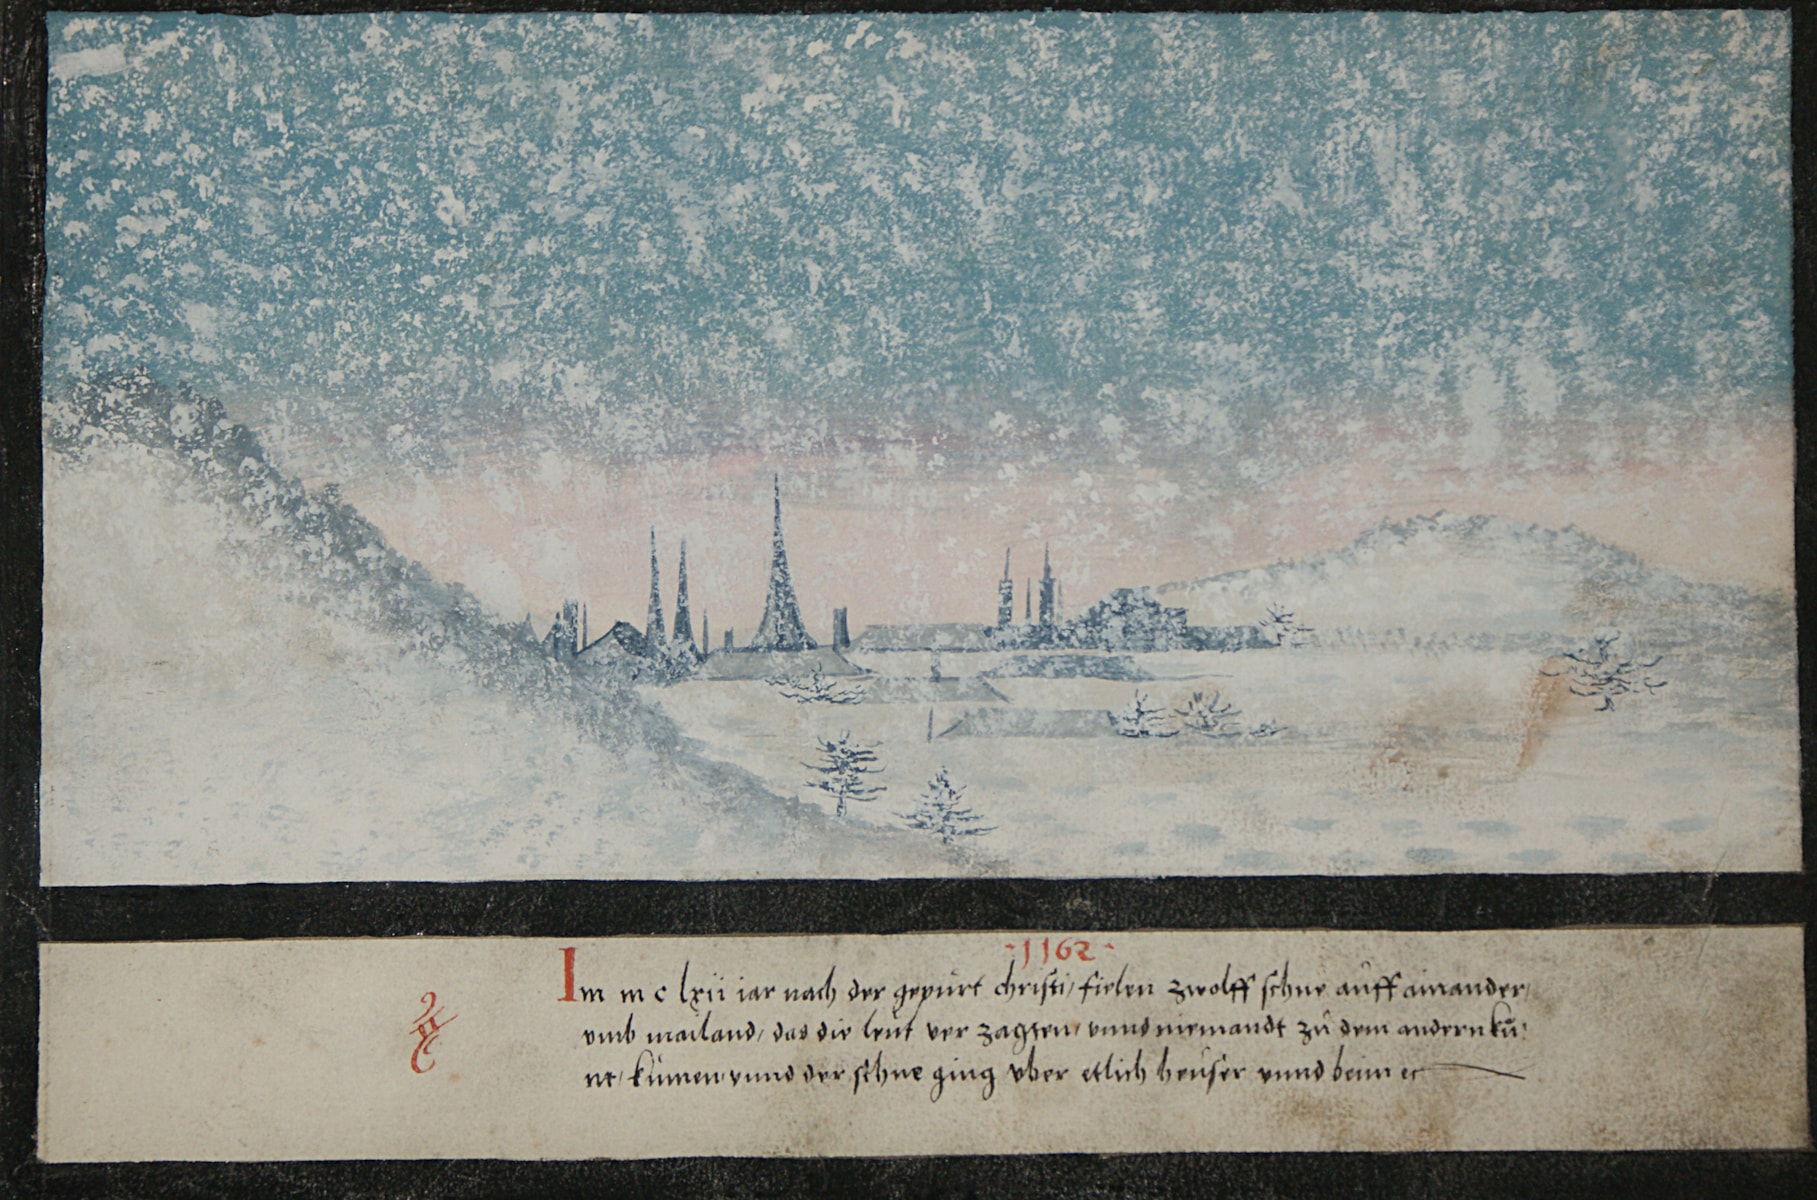 ·1162·
Im m c lxii iar nach der gepürt christi/ fielen zwolff schne aüff ainander/
vmb mailand/ das die leüt ver zagten/ vnnd niemandt zü dem andern kü:
ne/ kümen vnnd der schne ging vber etlich heüser vnnd beim ec